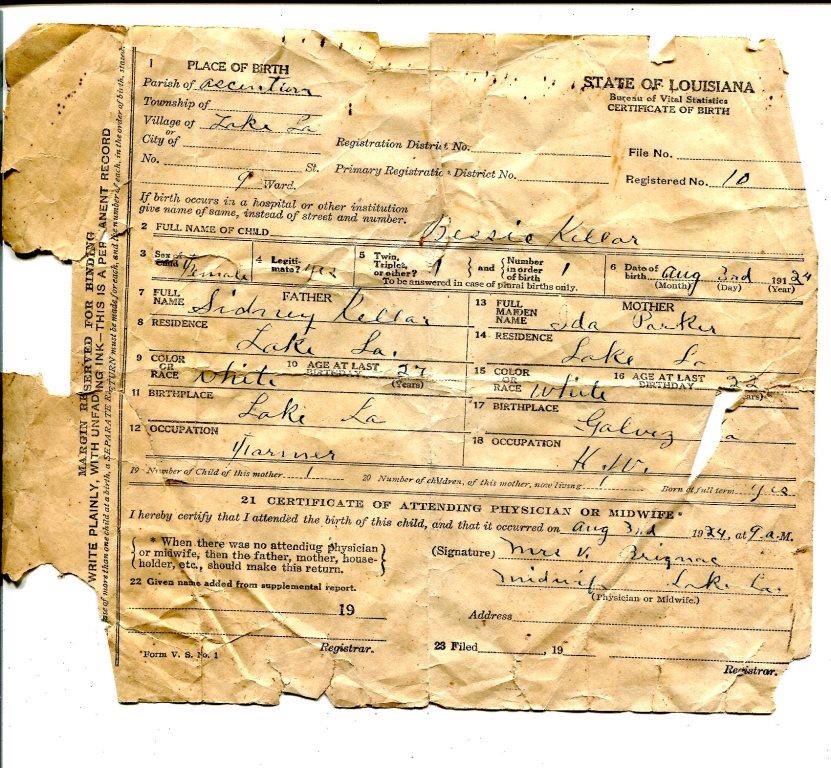 MARGIN RESERVED FOR BINDING
WRITE PLAINLY, WITH UNFADING INK—THIS IS A PERMANENT RECORD
case of more than one child at a birth, a SEPARATE RETURN must be made for each, and the number of each, in the order of birth, stated.
1 PLACE OF BIRTH
STATE OF LOUISIANA
Bureau of Vital Statistics
CERTIFICATE OF BIRTH
Parish of ascention
Township of
Village of Lake La
or
City of
Registration District No.
File No.
No. St. Primary Registration District No.
Registered No. 10
9 Ward.
If birth occurs in a hospital or other institution
give name of same, instead of street and number.
2 FULL NAME OF CHILD Bessie Kellar
3 Sex of Child Female
4 Legitimate? yes
5 Twin, Triplet, or other? 1 and Number in order of birth 1
To be answered in case of plural births only.
6 Date of birth aug 3rd 19124
(Month) (Day) (Year)
7 FULL NAME FATHER Sidney Kellar
13 FULL MAIDEN NAME MOTHER Ida Parker
8 RESIDENCE Lake La.
14 RESIDENCE Lake La
9 COLOR OR RACE White 10 AGE AT LAST BIRTHDAY 27 (Years)
15 COLOR OR RACE White 16 AGE AT LAST BIRTHDAY 22 (Years)
11 BIRTHPLACE Lake La
17 BIRTHPLACE Galvez La
12 OCCUPATION Farmer
18 OCCUPATION H.W.
19 Number of Child of this mother 1 20 Number of children, of this mother, now living Born at full term yes
21 CERTIFICATE OF ATTENDING PHYSICIAN OR MIDWIFE*
I hereby certify that I attended the birth of this child, and that it occurred on aug 3rd 1924, at 9 a.M.
* When there was no attending physician
or midwife, then the father, mother, house-
holder, etc., should make this return.
(Signature) Mrs V.
midwif Lake La.
(Physician or Midwife.)
22 Given name added from supplemental report.
19
Address
Registrar.
23 Filed , 19
Registrar.
*Form V. S. No. 1